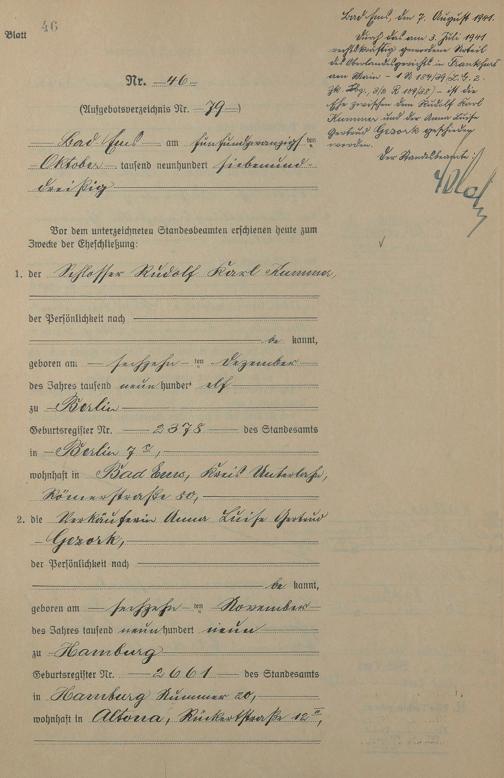 Blatt 46
Nr. 46
(Aufgebotsverzeichnis Nr. 79)
Bad Ems am fünfundzwanzigsten
Oktober tausend neunhundert siebenund-
dreißig
Vor dem unterzeichneten Standesbeamten erschienen heute zum
Zwecke der Eheschließung:
1. der Schlosser Rudolf Karl Kummer,
der Persönlichkeit nach
be kannt,
geboren am sechzehnten Dezember
des Jahres tausend neunhundert elf
zu Berlin
Geburtsregister Nr. 2378 des Standesamts
in Berlin 7
wohnhaft in Bad Ems, Kreis Unterlahn,
Römerstraße 50,
2. die Verkäuferin Anna Luise Gertrud
Gezork,
der Persönlichkeit nach
be kannt,
geboren am sechzehnten November
des Jahres tausend neunhundert neun
zu Hamburg
Geburtsregister Nr. 2661 des Standesamts
in Hamburg Nummer 20,
wohnhaft in Altona, Rückertstraße 12 II,
Bad Ems, den 7. August 1941.
Durch das am 3. Juli 1941
rechtskräftig gewordene Urteil
des Oberlandesgerichts in Frankfurt
am Main
ist die
Ehe zwischen dem Rudolf Karl
Kummer und der Anna Luise
Gertrud Gezork geschieden
worden.
Der Standesbeamte: